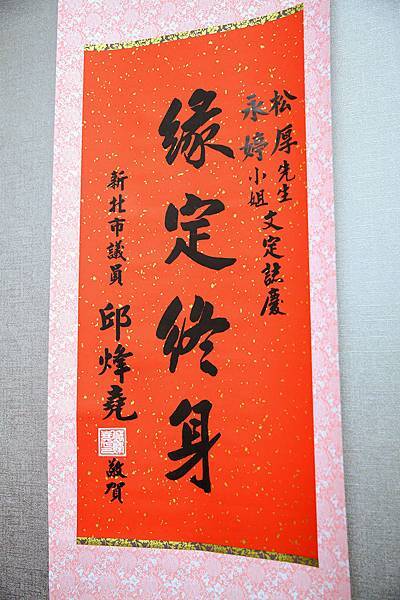 松厚先生
永婷小姐
文定誌慶
緣定終身
新北市議員 邱烽堯 敬賀